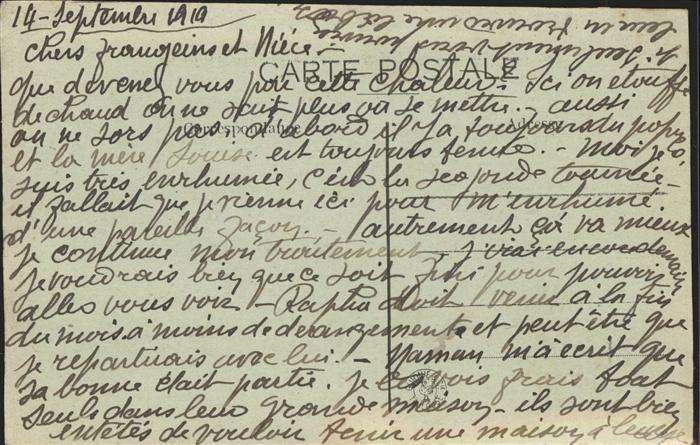 14 - Septembre 1919
Chers frangeins et Nièce -
CARTE POSTALE
que devenez vous par cette chaleur? Ici on étouffe
de chaud on ne sait plus où se mettre. - aussi
Correspondance
Adresse
on ne sors pas. d'abord il y a toujours du popo
et la mère Louise est toujours tenue. - Moi je
suis très enrhumée, c'est la seconde tournée -
il fallait que je vienne ici pour m'enrhumé
d'une pareille façon. - autrement ça va mieux
je continue mon traitement, j'irai encore demain
je voudrais bien que ce soit fini pour pouvoir
aller vous voir - Rapha doit venir à la fin
du mois à moins de derangements et peut être que
je repartirais avec lui. - Maman m'a écrit que
sa bonne était partie. je les vois frais tout
seuls dans leur grande maison - ils sont bien
entêtés de vouloir tenir une maison à leur